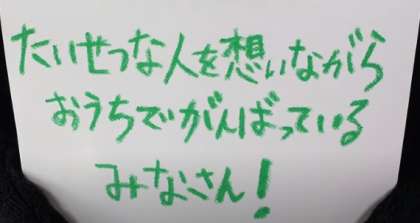 たいせつな人を想いながら
おうちでがんばっている
みなさん!